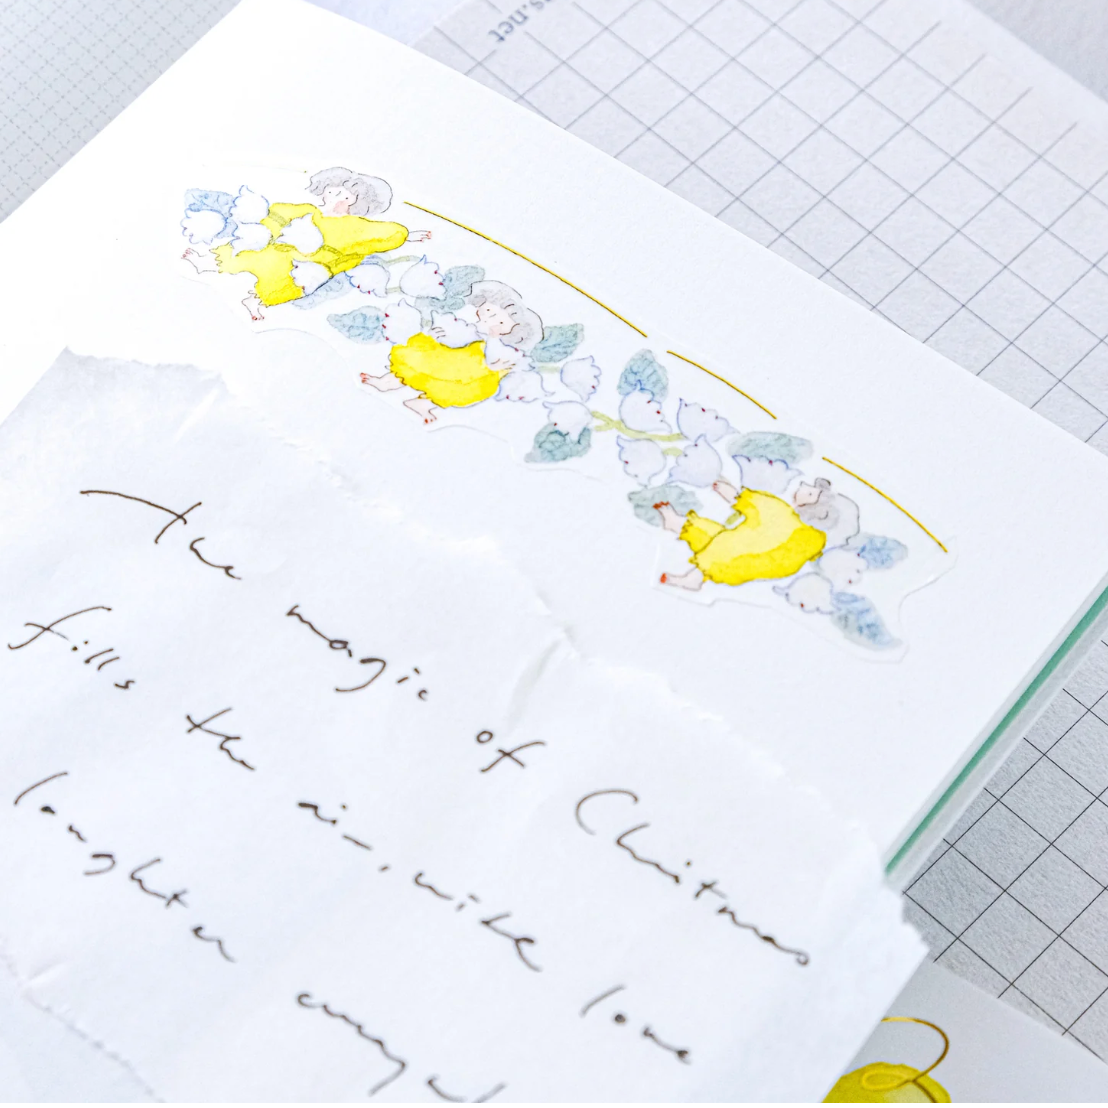 The magic of Christmas
fills the air, with love
laughter
s.net